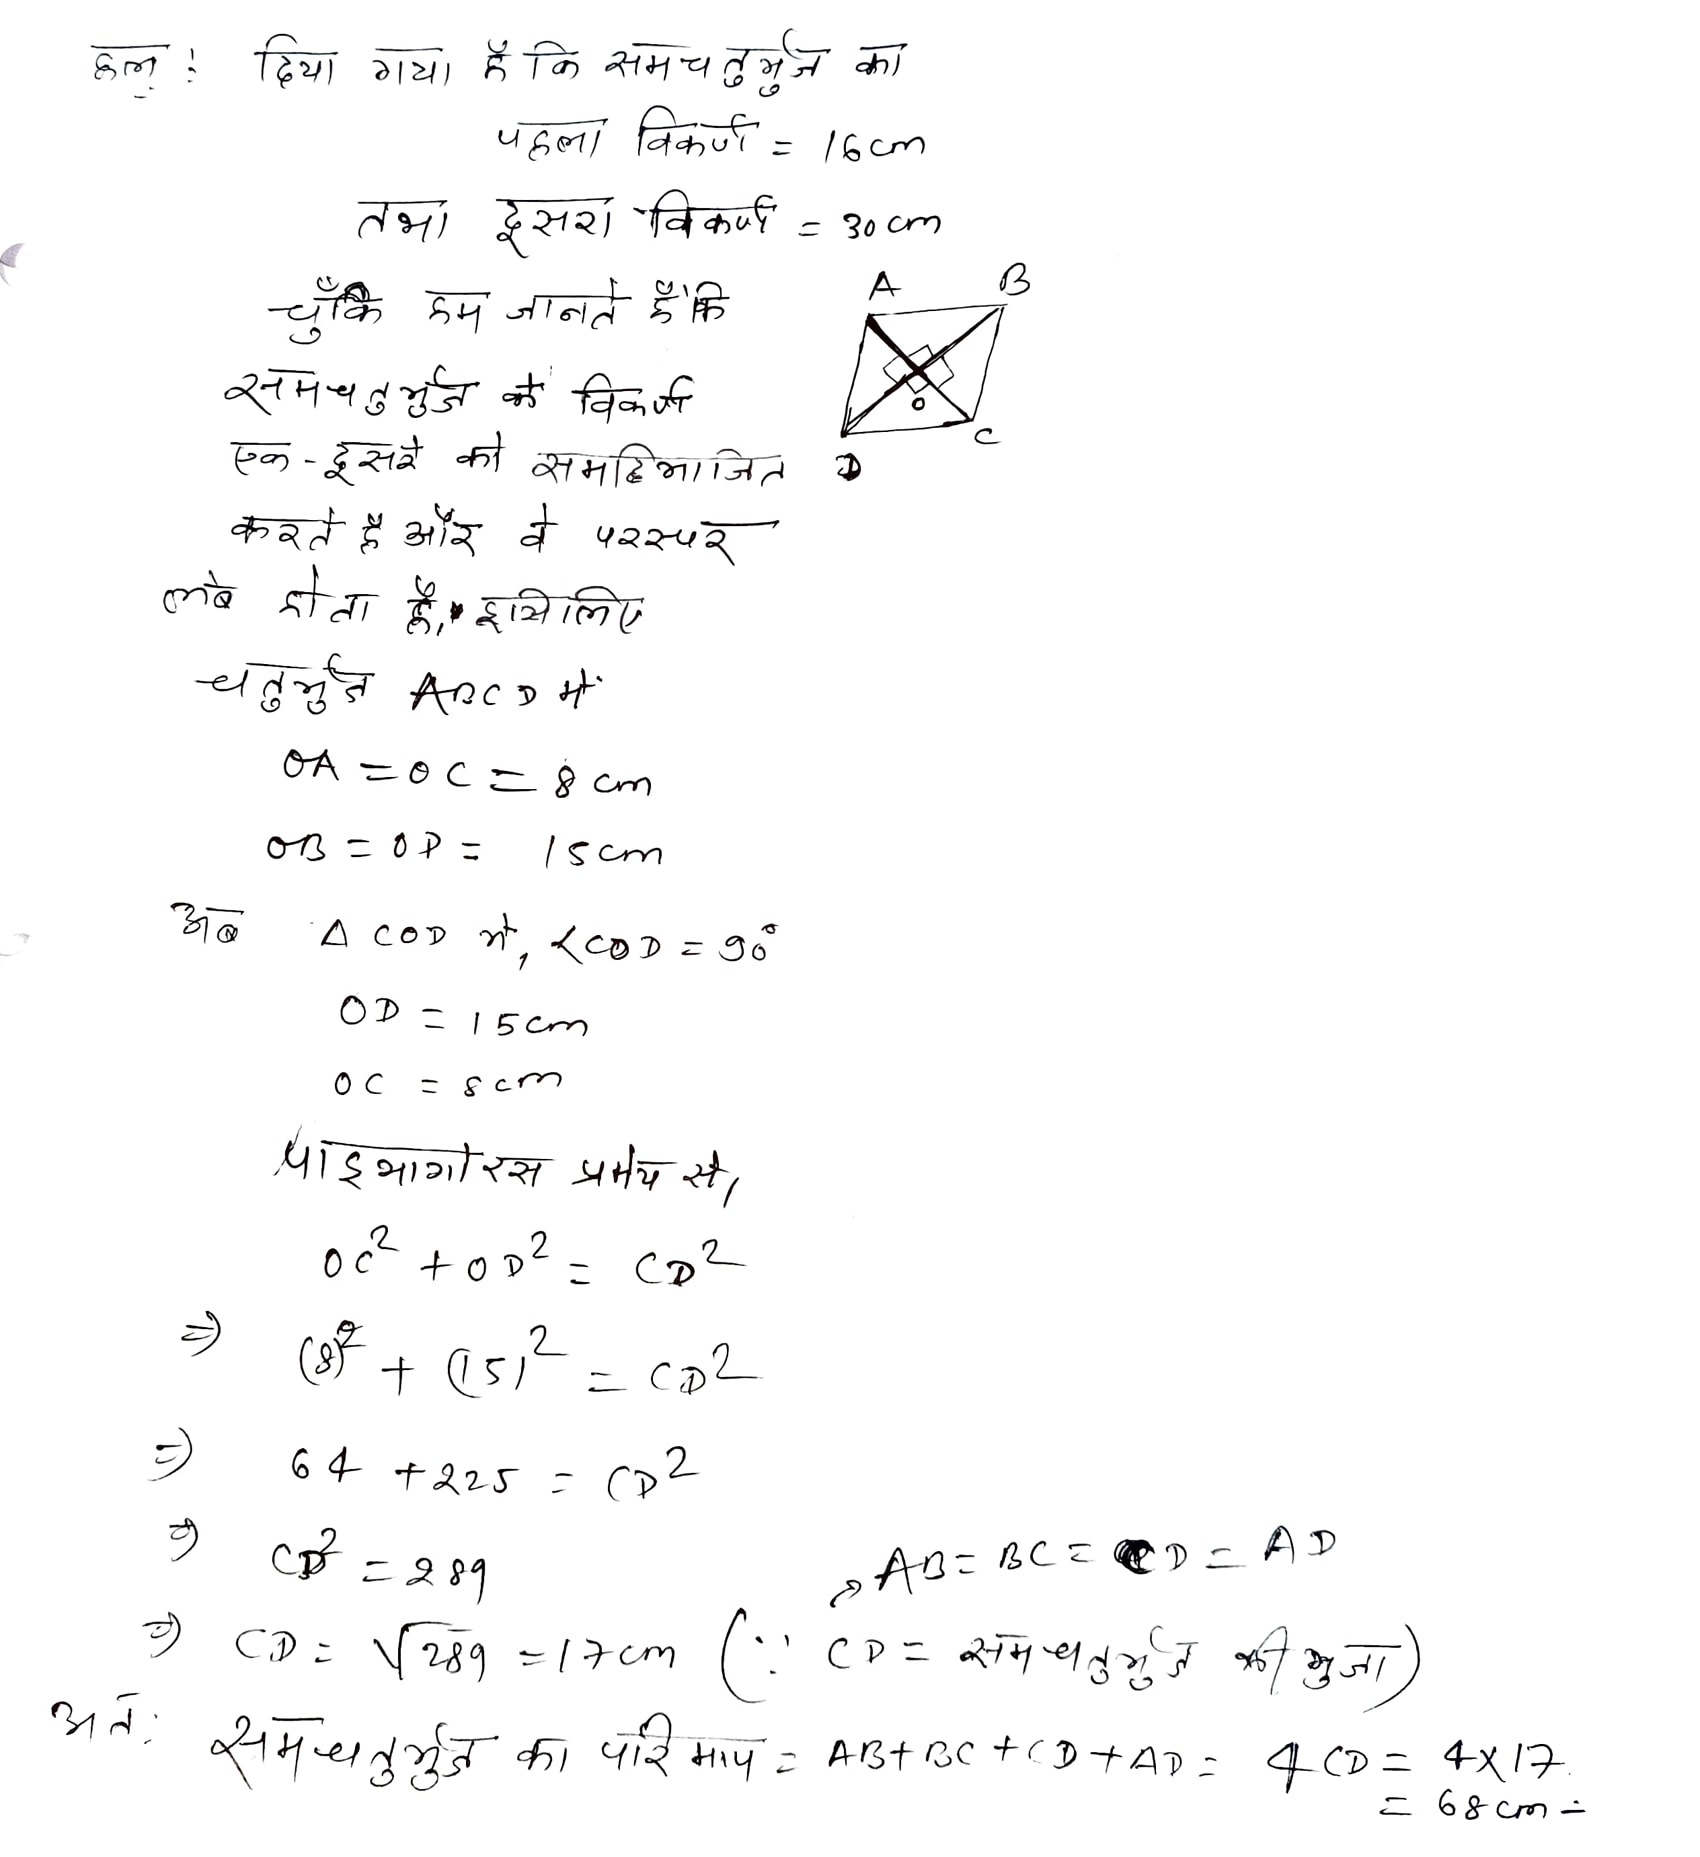 हल : दिया गया है कि समचतुर्भुज का
पहला विकर्ण = 16cm
तथा दूसरा विकर्ण = 30cm
चुँकि हम जानते हैं कि
A B
समचतुर्भुज के विकर्ण
O
C
एक-दूसरे को समद्विभाजित
D
करते हैं और वे परस्पर
लंब होता है, इसिलिए
चतुर्भुज ABCD में
OA = OC = 8 cm
OB = OD = 15cm
अब Δ COD में, ∠COD = 90°
OD = 15cm
OC = 8cm
पाइथागोरस प्रमेय से,
OC² + OD² = CD²
⇒ (8)² + (15)² = CD²
⇒ 64 + 225 = CD²
⇒ CD² = 289
AB = BC = CD = AD
⇒ CD = √289 = 17cm (∵ CD = समचतुर्भुज की भुजा)
अतः समचतुर्भुज का परिमाप = AB + BC + CD + AD = 4 CD = 4×17
= 68cm